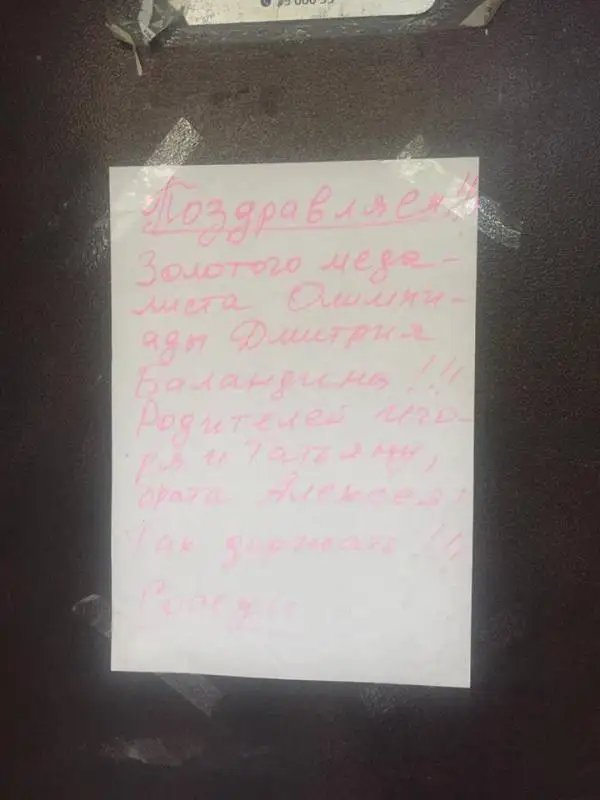 Поздравляем!!
Золотого меда-
листа Олимпи-
ады Дмитрия
Баландина!!!
Родителей Иго-
ря и Татьяну,
брата Алексея!
Так держать!!!
Соседи